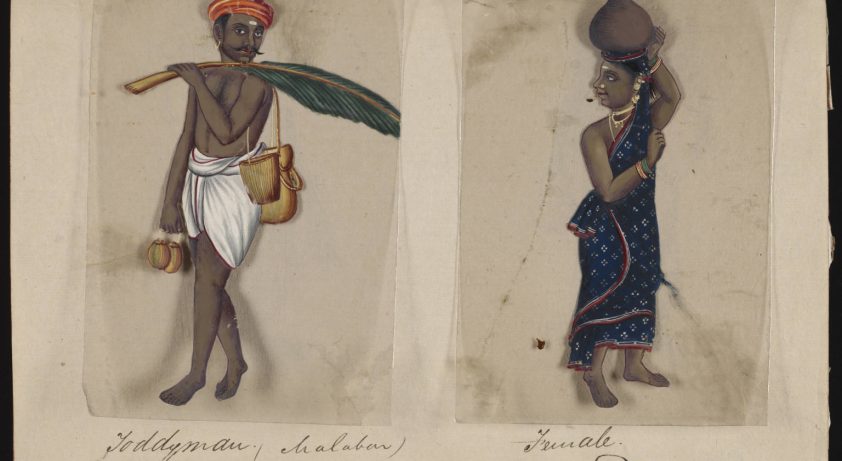 Toddyman. (Malabar)
Female.